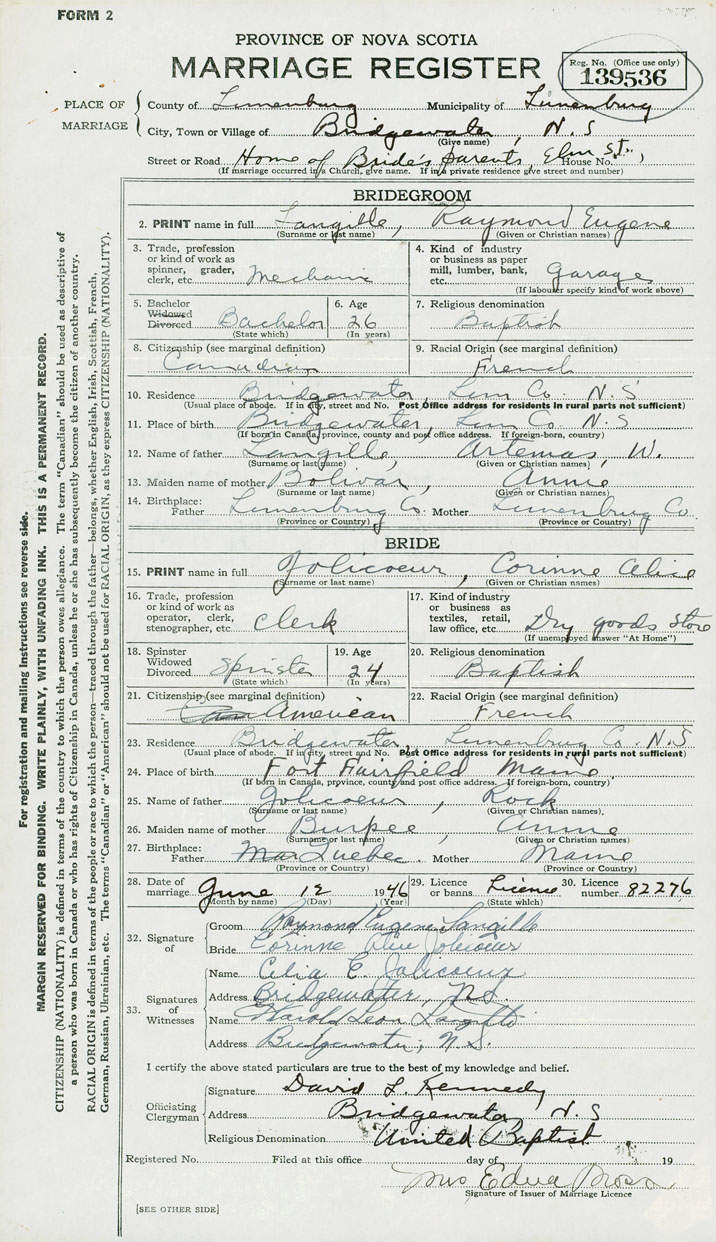 FORM 2
PROVINCE OF NOVA SCOTIA
MARRIAGE REGISTER
Reg. No. (Office use only)
139536
PLACE OF MARRIAGE
County of Lunenburg Municipality of Lunenburg
City, Town or Village of Bridgewater, N.S
(Give name)
Street or Road Home of Bride's parents, Elm St., House No.
(If marriage occurred in a Church, give name. If in a private residence give street and number)
BRIDEGROOM
2. PRINT name in full Langille, Raymond Eugene
(Surname or last name) (Given or Christian names)
3. Trade, profession or kind of work as spinner, grader, clerk, etc. Mechanic
4. Kind of industry or business as paper mill, lumber, bank, etc. Garage
(If labourer specify kind of work above)
5. Bachelor Widowed Divorced Bachelor
(State which)
6. Age 26
(In years)
7. Religious denomination Baptist
8. Citizenship (see marginal definition) Canadian
9. Racial Origin (see marginal definition) French
10. Residence Bridgewater Lun Co. N.S
(Usual place of abode. If in city, street and No. Post Office address for residents in rural parts not sufficient)
11. Place of birth Bridgewater, Lun Co. N.S
(If born in Canada, province, county and post office address. If foreign-born, country)
12. Name of father Langille, Artemas W.
(Surname or last name) (Given or Christian names)
13. Maiden name of mother Bolivar, Annie
(Surname or last name) (Given or Christian names)
14. Birthplace: Father Lunenburg Co. Mother Lunenburg Co.
(Province or Country) (Province or Country)
BRIDE
15. PRINT name in full Jolicoeur, Corinne Alice
(Surname or last name) (Given or Christian names)
16. Trade, profession or kind of work as operator, clerk, stenographer, etc. Clerk
17. Kind of industry or business as textiles, retail, law office, etc. Dry goods Store
(If unemployed answer "At Home")
18. Spinster Widowed Divorced Spinster
(State which)
19. Age 24
(In years)
20. Religious denomination Baptist
21. Citizenship (see marginal definition) American
22. Racial Origin (see marginal definition) French
23. Residence Bridgewater, Lunenburg Co. N.S
(Usual place of abode. If in city, street and No. Post Office address for residents in rural parts not sufficient)
24. Place of birth Fort Fairfield Maine
(If born in Canada, province, county and post office address. If foreign-born, country)
25. Name of father Jolicoeur, Rock
(Surname or last name) (Given or Christian names)
26. Maiden name of mother Burpee, Annie
(Surname or last name) (Given or Christian names)
27. Birthplace: Father Quebec. Mother Maine
(Province or Country) (Province or Country)
28. Date of marriage June 12 1946
(Month by name) (Day) (Year)
29. Licence or banns Licence
(State which)
30. Licence number 82276
32. Signature of
Groom Raymond Eugene Langille
Bride Corinne Alice Jolicoeur
33. Signatures of Witnesses
Name Celia E. Jolicoeur
Address Bridgewater, N.S.
Name Harold Leon Langille
Address Bridgewater, N.S.
I certify the above stated particulars are true to the best of my knowledge and belief.
Officiating Clergyman
Signature David L. Kennedy
Address Bridgewater N.S
Religious Denomination United Baptist
Registered No. Filed at this office day of 19
Mrs Edna
Signature of Issuer of Marriage Licence
[SEE OTHER SIDE]
For registration and mailing instructions see reverse side.
MARGIN RESERVED FOR BINDING. WRITE PLAINLY, WITH UNFADING INK. THIS IS A PERMANENT RECORD.
CITIZENSHIP (NATIONALITY) is defined in terms of the country to which the person owes allegiance. The term "Canadian" should be used as descriptive of
a person who was born in Canada or who has rights of Citizenship in Canada, unless he or she has subsequently become the citizen of another country.
RACIAL ORIGIN is defined in terms of the people or race to which the person—traced through the father—belongs, whether English, Irish, Scottish, French,
German, Russian, Ukrainian, etc. The terms "Canadian" or "American" should not be used for RACIAL ORIGIN, as they express CITIZENSHIP (NATIONALITY).